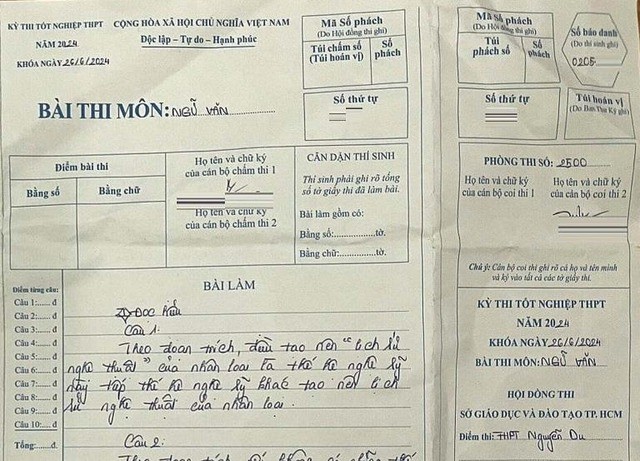 KỲ THI TỐT NGHIỆP THPT
NĂM 2024
KHÓA NGÀY 26/6/2024
CỘNG HÒA XÃ HỘI CHỦ NGHĨA VIỆT NAM
Độc lập - Tự do - Hạnh phúc
BÀI THI MÔN: NGỮ VĂN
Mã Số phách
(Do Hội đồng thi ghi)
Túi chấm số
(Túi hoán vị)
Số
phách
Số thứ tự
Điểm bài thi
Bằng số
Bằng chữ
Họ tên và chữ ký
của cán bộ chấm thi 1
Họ tên và chữ ký
của cán bộ chấm thi 2
CĂN DẶN THÍ SINH
Thí sinh phải ghi rõ tổng
số tờ giấy thi đã làm bài.
Bài làm gồm có:
Bằng số:..............tờ.
Bằng chữ:............tờ.
BÀI LÀM
Điểm từng câu:
Câu 1:...... đ
Câu 2:...... đ
Câu 3:...... đ
Câu 4:...... đ
Câu 5:...... đ
Câu 6:...... đ
Câu 7:...... đ
Câu 8:...... đ
Câu 9:...... đ
Câu 10:..... đ
Tổng:......đ
Đọc hiểu
Câu 1:
Theo đoạn trích, điều tạo nên "lịch sử
nghệ thuật" của nhân loại là thế hệ nghệ sỹ
này tiếp thế hệ nghệ sỹ khác tạo nên lịch
sử nghệ thuật của nhân loại.
Câu 2:
Theo đoạn trích,
Mã Số phách
(Do Hội đồng thi ghi)
Túi
phách số
Số
phách
Số thứ tự
Số báo danh
(Do thí sinh ghi)
0205
Túi hoán vị
(Do Ban Thư Ký ghi)
PHÒNG THI SỐ: 2500
Họ tên và chữ ký
của cán bộ coi thi 1
Họ tên và chữ ký
của cán bộ coi thi 2
Chú ý: Cán bộ coi thi ghi rõ cả họ và tên mình
và ký vào tất cả các tờ giấy thi.
KỲ THI TỐT NGHIỆP THPT
NĂM 2024
KHÓA NGÀY 26/6/2024
BÀI THI MÔN: NGỮ VĂN
HỘI ĐỒNG THI
SỞ GIÁO DỤC VÀ ĐÀO TẠO TP. HCM
Điểm thi: THPT Nguyễn Du